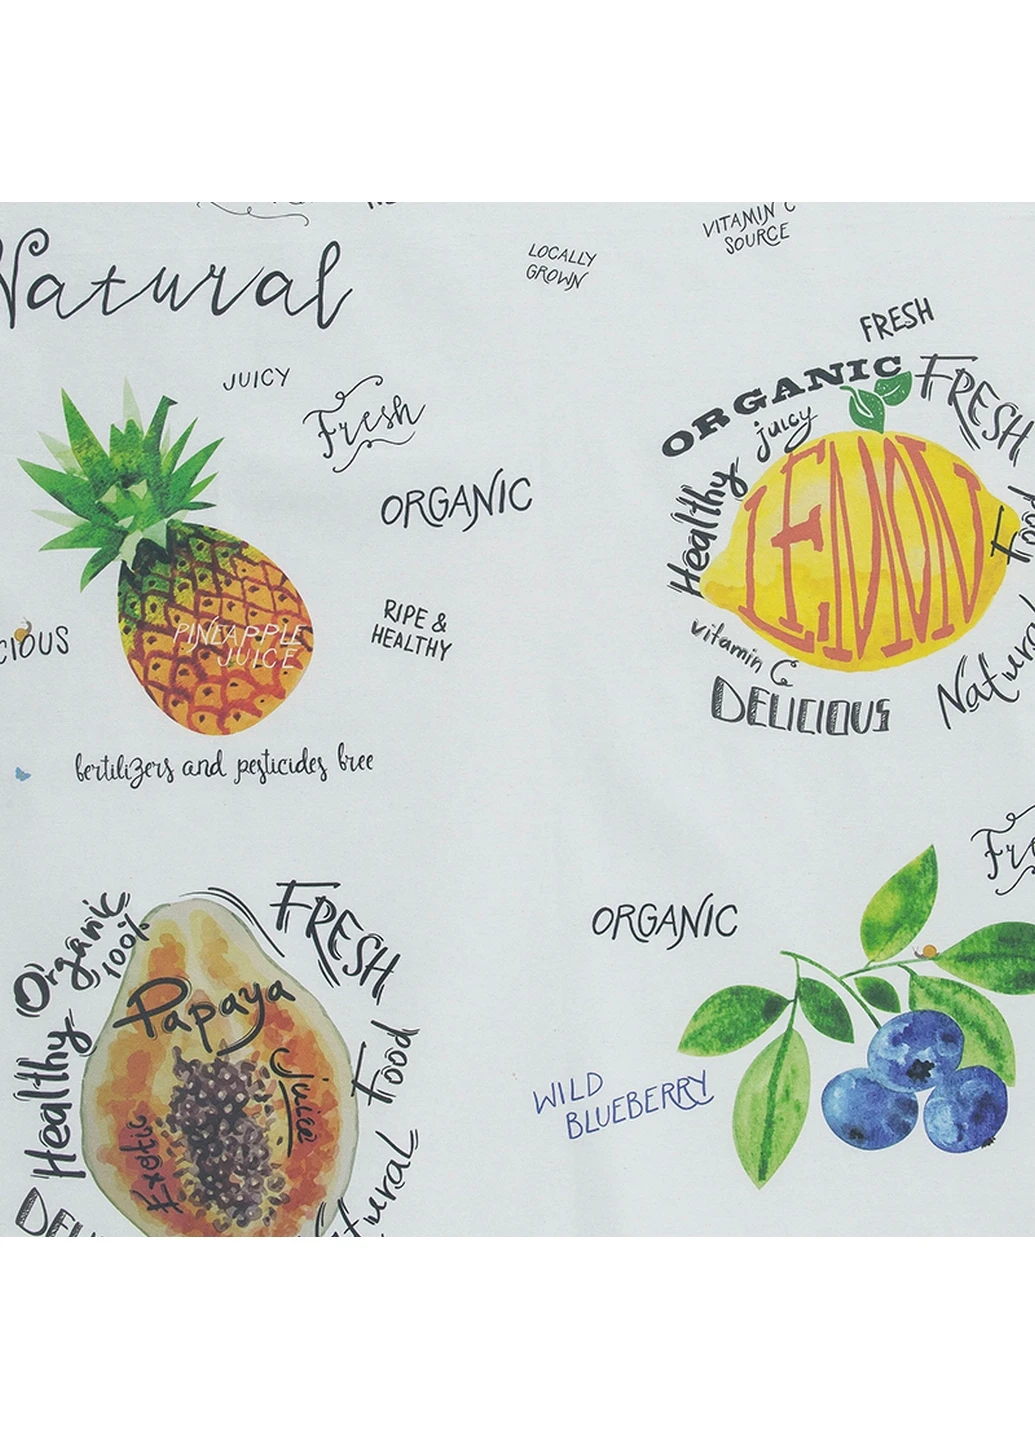 VITAMIN C
SOURCE
LOCALLY
GROWN
Natural
JUICY
Fresh
ORGANIC
PINEAPPLE
JUICE
RIPE &
HEALTHY
fertilizers and pesticides free
FRESH
ORGANIC
FRESH
juicy
Healthy
LEMON
Food
vitamin C
Natural
DELICIOUS
Organic
100%
FRESH
Healthy
Papaya
Juice
Exotic
Food
ORGANIC
WILD
BLUEBERRY